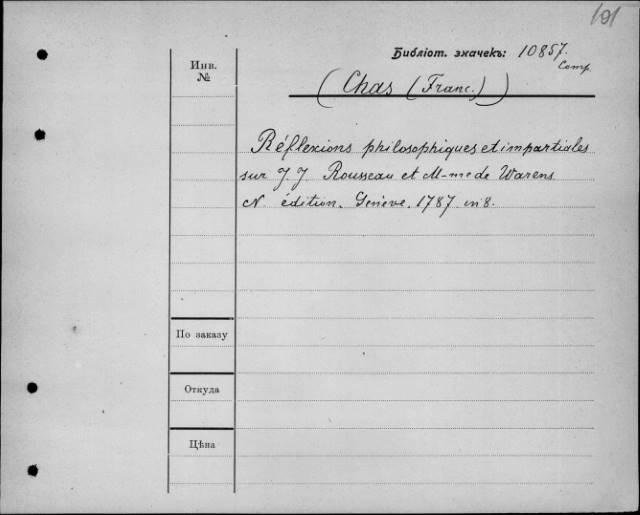 101
Библіот. значекъ: 10857.
Comp.
Инв.
№
(Chas (Franc.))
Réflexions philosophiques et impartiales
sur J J Rousseau et M-me de Warens
N. édition. Genève. 1787 in 8.
По заказу
Откуда
Цѣна